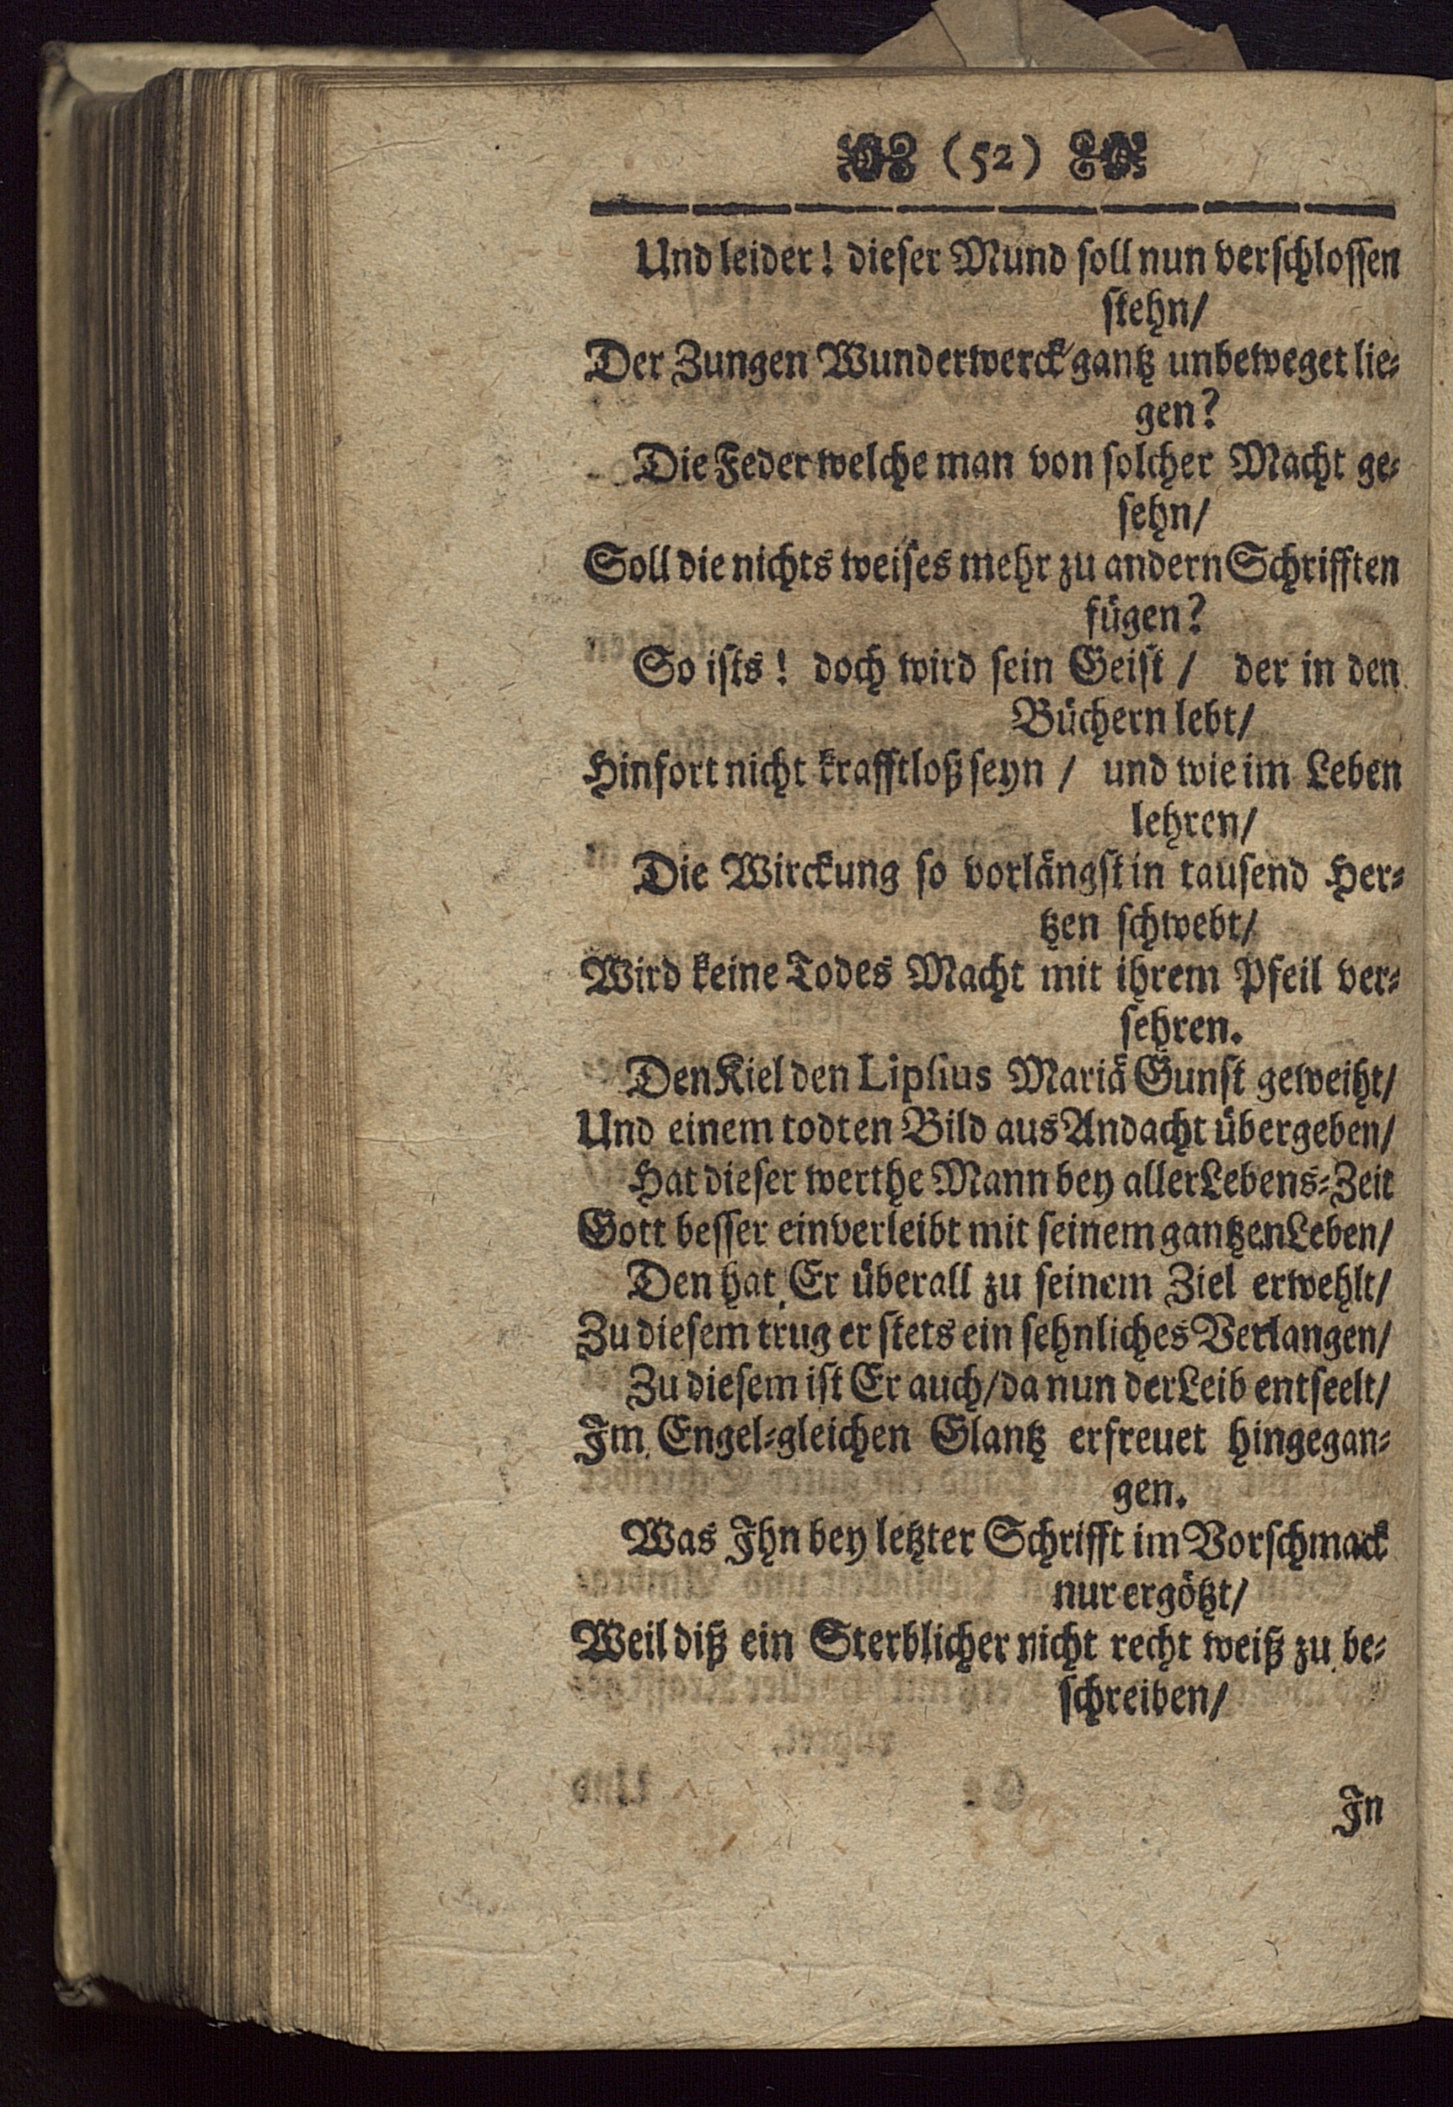 (52)
Und leider! dieser Mund soll nun verschlossen
stehn/
Der Zungen Wunderwerck gantz unbeweget lie-
gen?
Die Feder welche man von solcher Macht ge-
sehn/
Soll die nichts weises mehr zu andern Schrifften
fügen?
So ists! doch wird sein Geist / der in den
Büchern lebt/
Hinfort nicht krafftloß seyn / und wie im Leben
lehren/
Die Wirckung so vorlängst in tausend Her-
tzen schwebt/
Wird keine Todes Macht mit ihrem Pfeil ver-
sehren.
Den Kiel den Lipsius Mariä Gunst geweiht/
Und einem todten Bild aus Andacht übergeben/
Hat dieser werthe Mann bey aller Lebens-Zeit
Gott besser einverleibt mit seinem gantzen Leben/
Den hat Er überall zu seinem Ziel erwehlt/
Zu diesem trug er stets ein sehnliches Verlangen/
Zu diesem ist Er auch/ da nun der Leib entseelt/
Im Engel-gleichen Glantz erfreuet hingegan-
gen.
Was Ihn bey letzter Schrifft im Vorschmack
nur ergötzt/
Weil diß ein Sterblicher nicht recht weiß zu be-
schreiben/
In